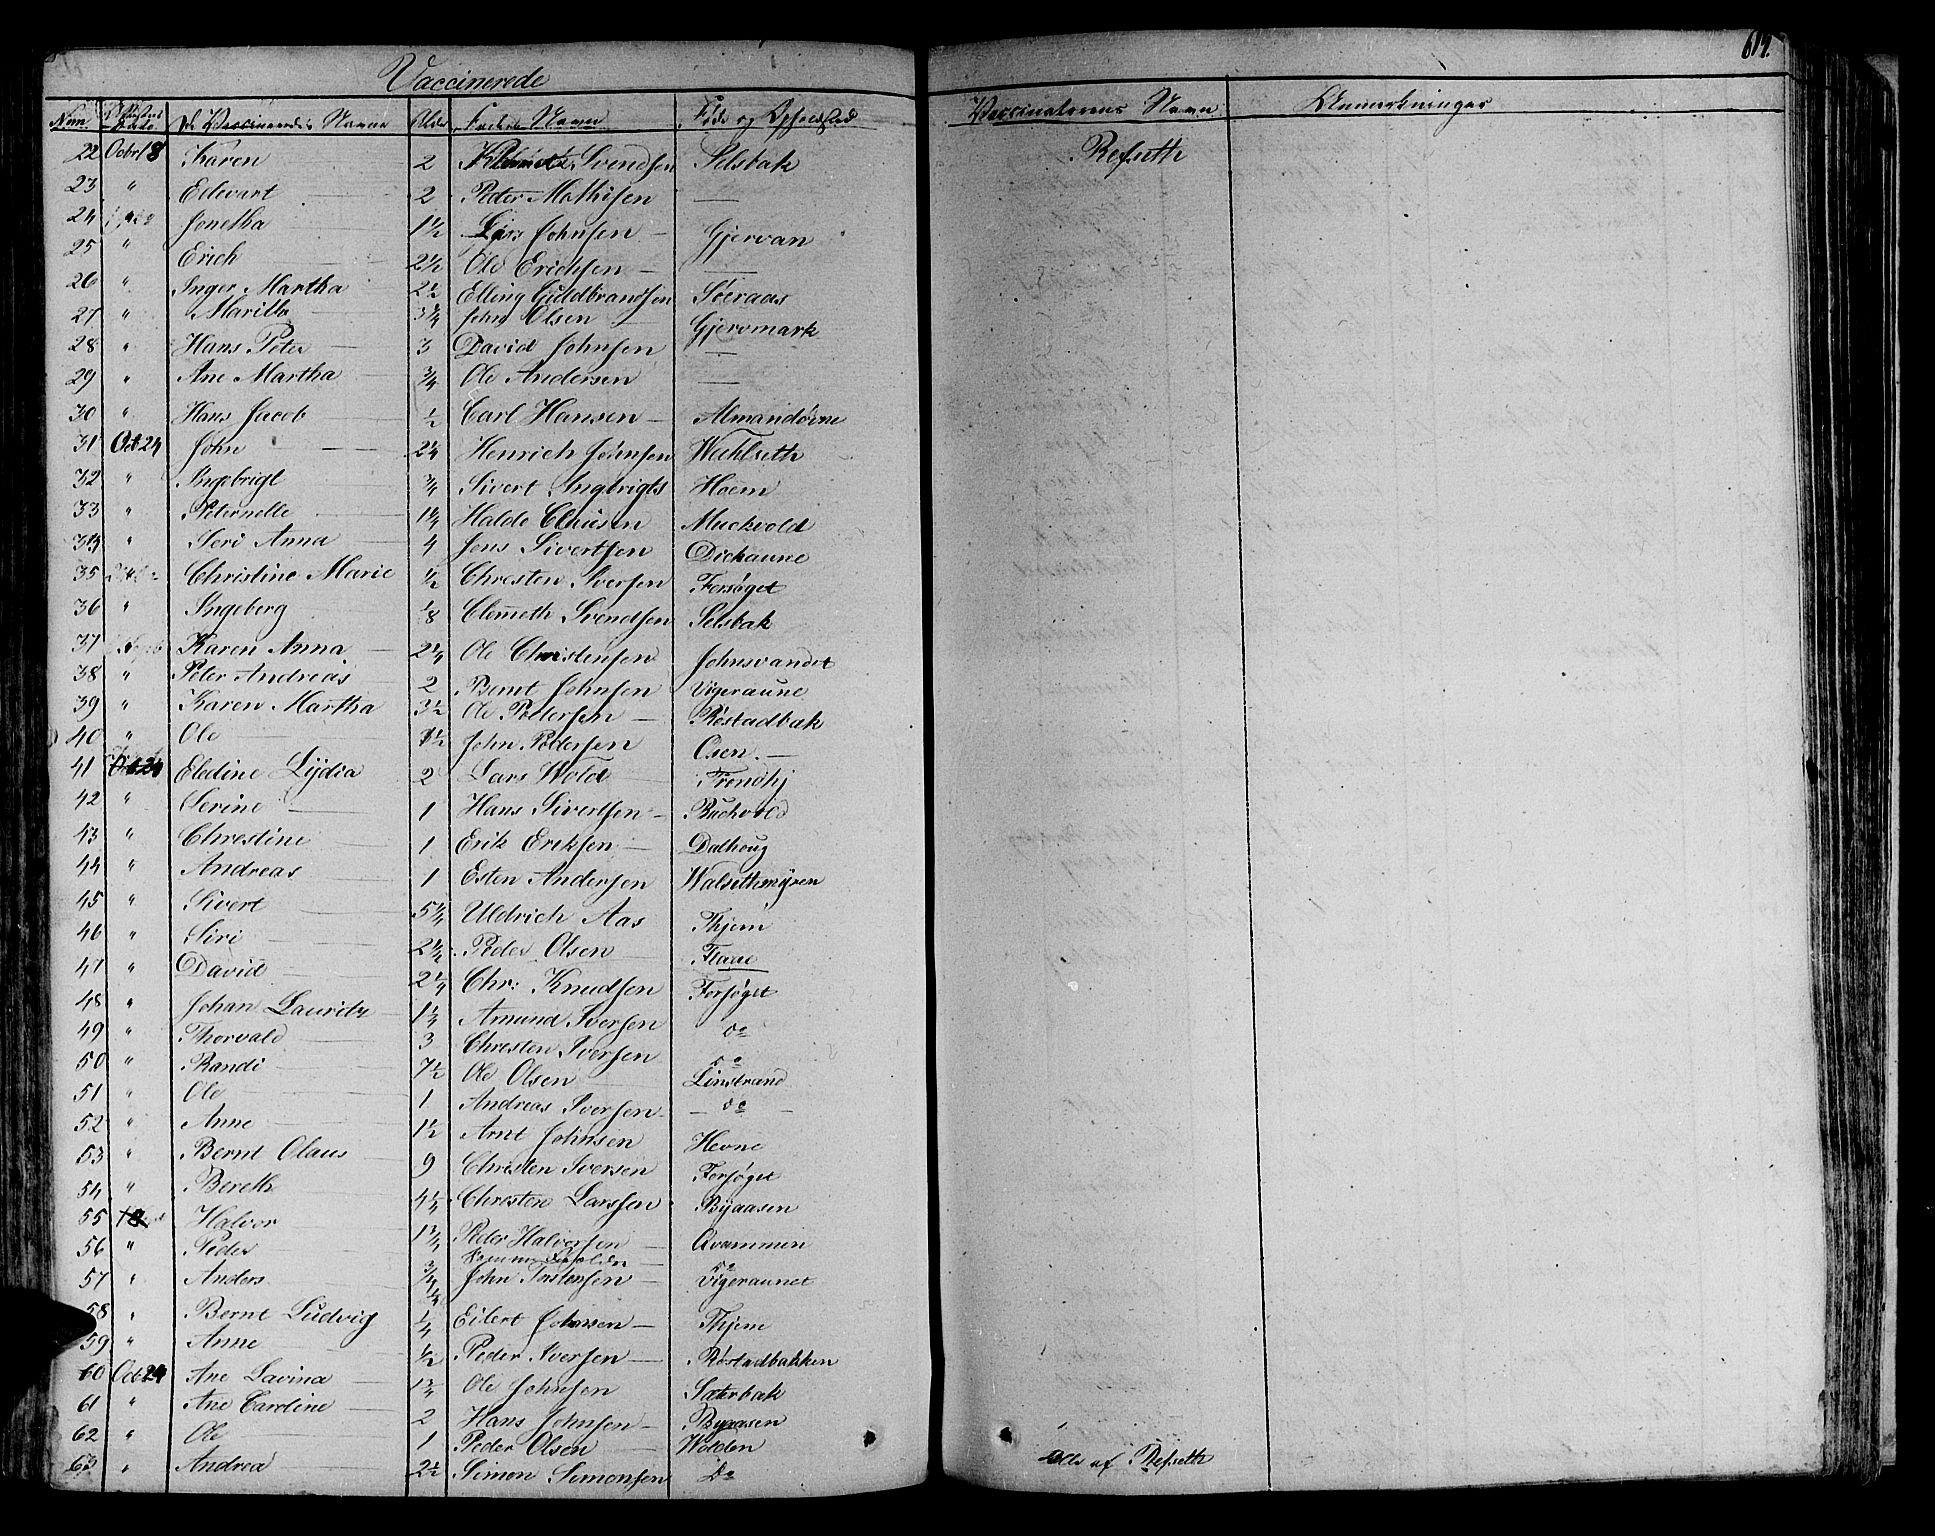 614.
Vaccinerede
Num. Dato De Vaccineredes Navne Alder Fader Navn Føde og Opholdsted Vaccinateurens Navn Anmerkninger
22 Octbr 18 Karen 2 Svendsen Selsbak Refseth
23 " Edevart 2 Peder Mathisen —
24 Jonetha 1½ Lars Johnsen — Gjervan
25 " Erich 2½ Ole Erichsen — —
26 " Inger Martha 2½ Elling Guldbrandsen Søeraas
27 " Marilla 3¼ John Olsen — Gjervmark
28 " Hans Peter 3 David Johnsen —
29 " Ane Martha ¾ Ole Andersen —
30 " Hans Jacob ½ Carl Hansen — Almandørne
31 Oct 24 John 2¼ Henrich Johnsen Wuhlseth
32 " Ingebrigt ¾ Sivert Ingbrigts Hoem
33 " Peternelle 1¾ Halde Clausen Muckvold
34 " Seri Anna 4 Jens Sivertsen Dickaune
35 Christine Marie ½ Chresten Iversen Forsøget
36 " Ingeberg ⅛ Clemeth Svendsen Selsbak
37 Karen Anna 2¼ Ole Christensen Johnsvandet
38 " Peter Andreas 2 Bernt Johnsen Vigeraune
39 " Karen Martha 3½ Ole Pedersen — Røstadbak
40 " Ole 1½ John Pedersen Osen —
41 Oct 24 Eledine Lydia 2 Lars Wold Trondhj
42 " Serine 1 Hans Sivertsen — Buchvold
43 " Chrestine 1 Erik Eriksen — Dalhoug
44 " Andreas 1 Esten Andersen Walsethmyren
45 " Sivert 5¾ Uldrich Aas Thjem
46 " Siri 2¾ Peder Olsen Flaae
47 " David 2¼ Chr: Knudsen Forsøget
48 " Johan Lauritz 1¾ Amund Iversen do
49 " Thorvald 3 Chresten Iversen do
50 " Randi 7½ Ole Olsen Linstrand
51 " Ole 1 Andreas Iversen — do —
52 " Anne 1½ Arnt Johnsen Hevne
53 " Bernt Olaus 9 Christen Iversen Forsøget
54 " Bereth 4½ Chresten Larssen Byaasen
55 Halvor 1¾ Peder Halvorsen — Qvammen
56 " Peder ¾ do
57 " Anders ¼ John Torstensen Vigeraunet
58 " Bernt Ludvig ¼ Eilert Johnsen — Thjem
59 " Anne ½ Peder Iversen — Røstadbakken
60 Oct 24 Ane Lavina 1¾ Ole Johnsen Sæterbak
61 " Ane Caroline 2 Hans Johnsen — Byaasen
62 " Ole 1 Peder Olsen Wolden
63 " Andrea 2½ Simon Simonsen Do Alle af Refseth